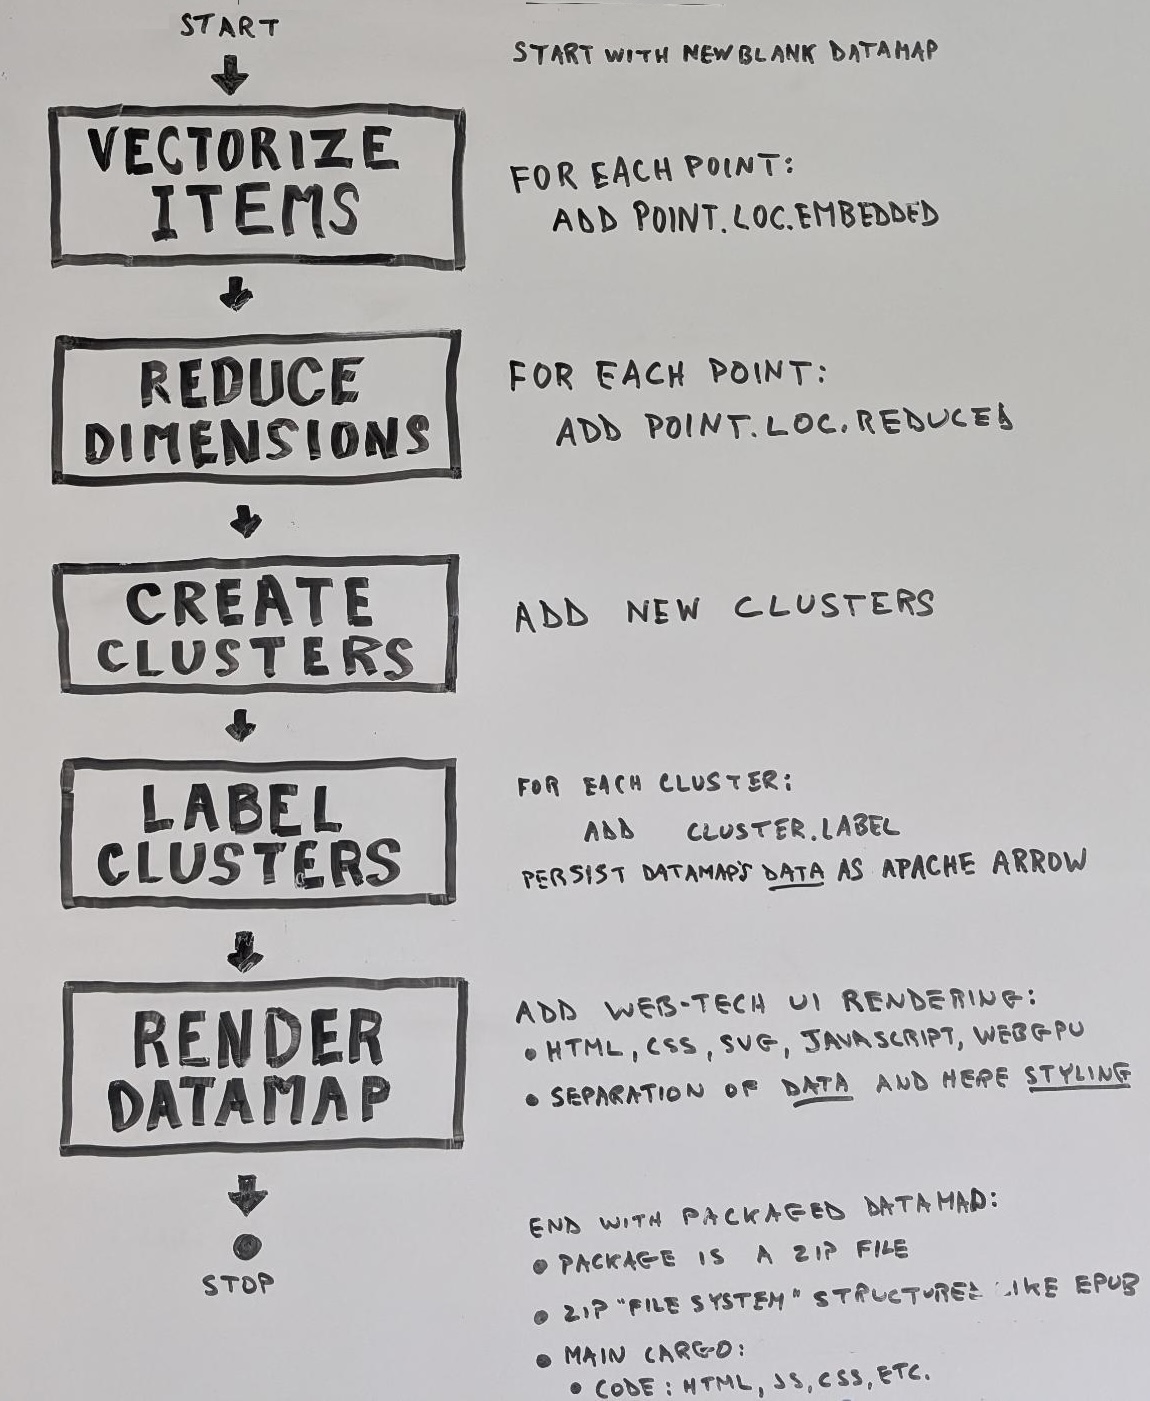 START
START WITH NEW BLANK DATAMAP
VECTORIZE
ITEMS
FOR EACH POINT:
ADD POINT.LOC.EMBEDDED
REDUCE
DIMENSIONS
FOR EACH POINT:
ADD POINT.LOC.REDUCED
CREATE
CLUSTERS
ADD NEW CLUSTERS
LABEL
CLUSTERS
FOR EACH CLUSTER:
ADD CLUSTER.LABEL
PERSIST DATAMAP'S DATA AS APACHE ARROW
RENDER
DATAMAP
ADD WEB-TECH UI RENDERING:
• HTML, CSS, SVG, JAVASCRIPT, WEBGPU
• SEPARATION OF DATA AND HERE STYLING
STOP
END WITH PACKAGED DATAMAP:
• PACKAGE IS A ZIP FILE
• ZIP "FILE SYSTEM" STRUCTURED LIKE EPUB
• MAIN CARGO:
• CODE: HTML, JS, CSS, ETC.